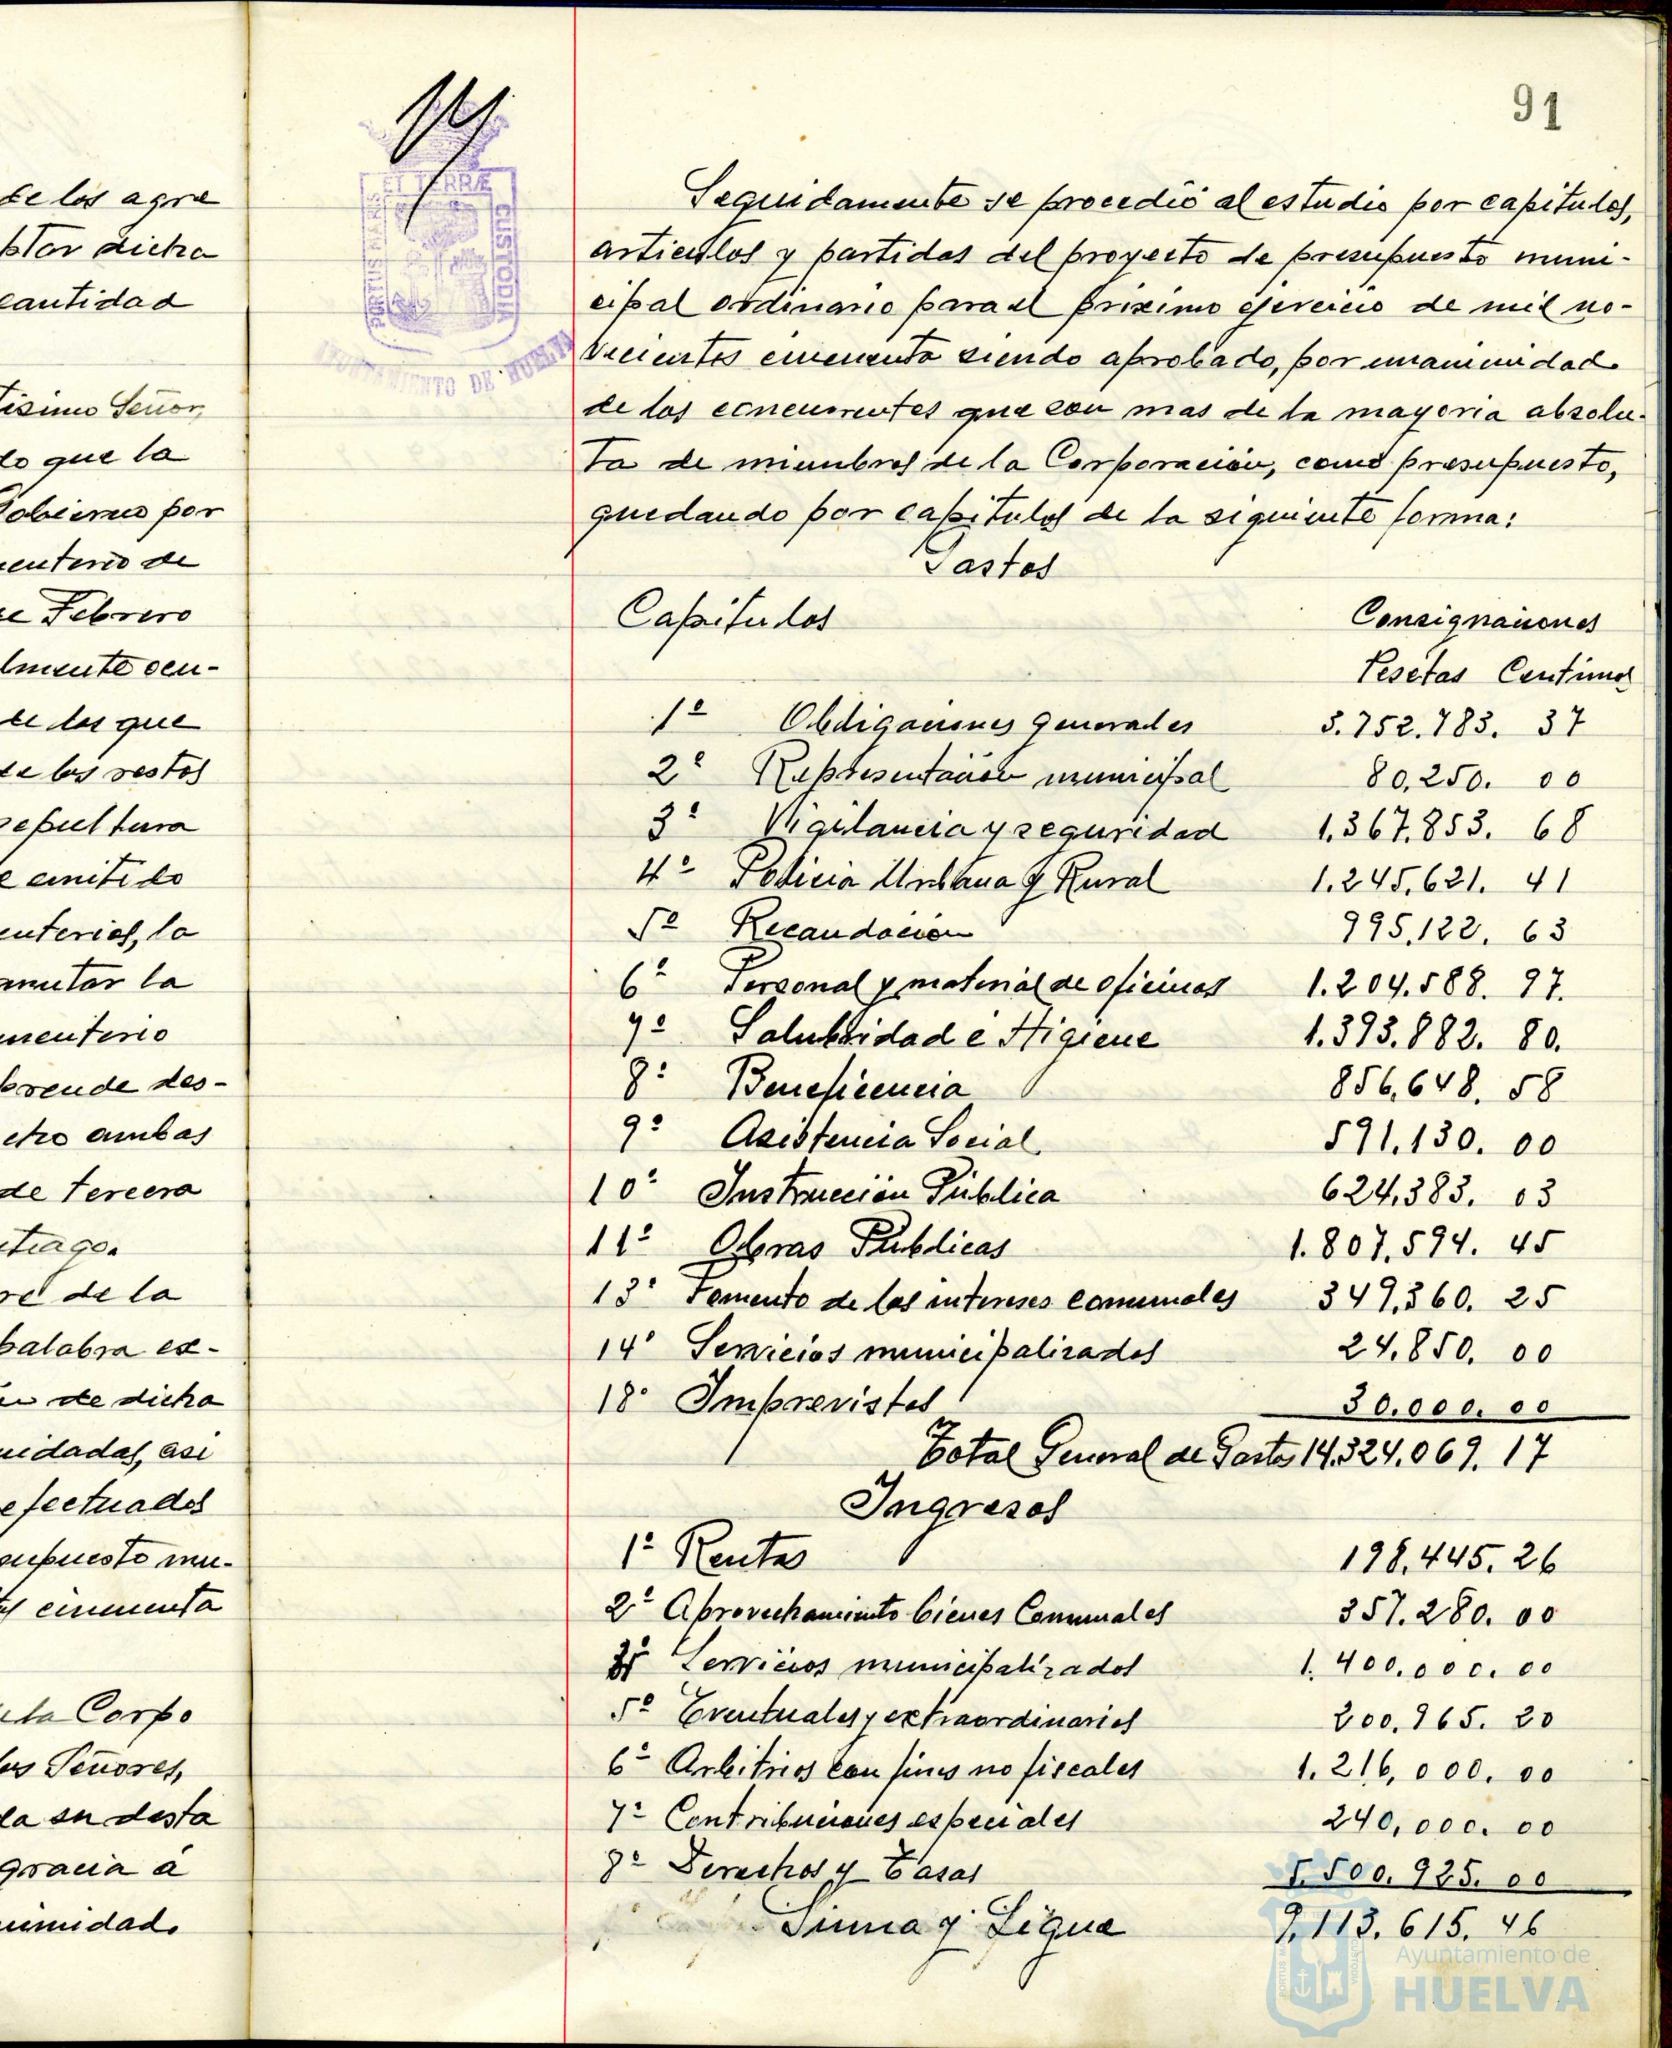 de los agre
ptar dicha
cantidad
tisimo Señor,
lo que la
Gobierno por
menterio de
de Febrero
lmente ocu-
de los que
de los restos
sepultura
e emitido
enterios, la
nmutar la
menterio
prende des-
cho ambas
de tercera
tiago.
re de la
palabra ex-
de dicha
uidadas, asi
efectuados
supuesto mu-
cincuenta
de la Corpo
los Señores,
la su desta
gracia á
nimidad.
91
ET TERRÆ
PORTUS MARIS
CUSTODIA
AYUNTAMIENTO DE HUELVA
Seguidamente se procedió al estudio por capitulos,
articulos y partidas del proyecto de presupuesto muni-
cipal ordinario para el próximo ejercicio de mil no-
vecientos cincuenta siendo aprobado, por unanimidad
de los concurrentes que son mas de la mayoria absolu-
ta de miembros de la Corporación, como presupuesto,
quedando por capitulos de la siguiente forma:
Gastos
Capitulos Consignaciones
Pesetas Centimos
1º Obligaciones generales 3.752.783. 37
2º Representación municipal 80.250. 00
3º Vigilancia y seguridad 1.367.853. 68
4º Policia Urbana y Rural 1.245.621. 41
5º Recaudación 995.122. 63
6º Personal y material de oficinas 1.204.588. 97.
7º Salubridad é Higiene 1.393.882. 80.
8º Beneficencia 856.648. 58
9º Asistencia Social 591.130. 00
10º Instrucción Pública 624.383. 03
11º Obras Publicas 1.807.594. 45
13º Fomento de los intereses comunales 349.360. 25
14º Servicios municipalizados 24.850. 00
18º Imprevistos 30.000. 00
Total General de Gastos 14.324.069. 17
Ingresos
1º Rentas 198.445. 26
2º Aprovechamiento bienes Comunales 357.280. 00
3º Servicios municipalizados 1.400.000. 00
5º Eventuales y extraordinarios 200.965. 20
6º Arbitrios con fines no fiscales 1.216.000. 00
7º Contribuciones especiales 240.000. 00
8º Derechos y Tasas 5.500.925. 00
Suma y Sigue 9.113.615. 46
Ayuntamiento de
HUELVA